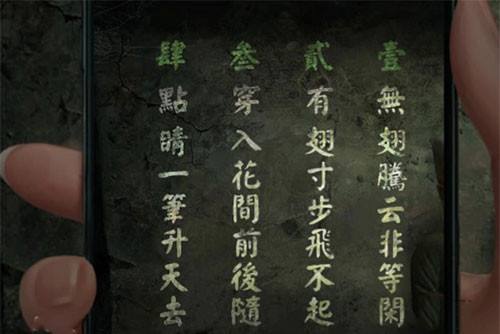 壹無翅騰云非等閑
貳有翅寸步飛不起
叁穿入花間前後隨
肆點睛一筆升天去